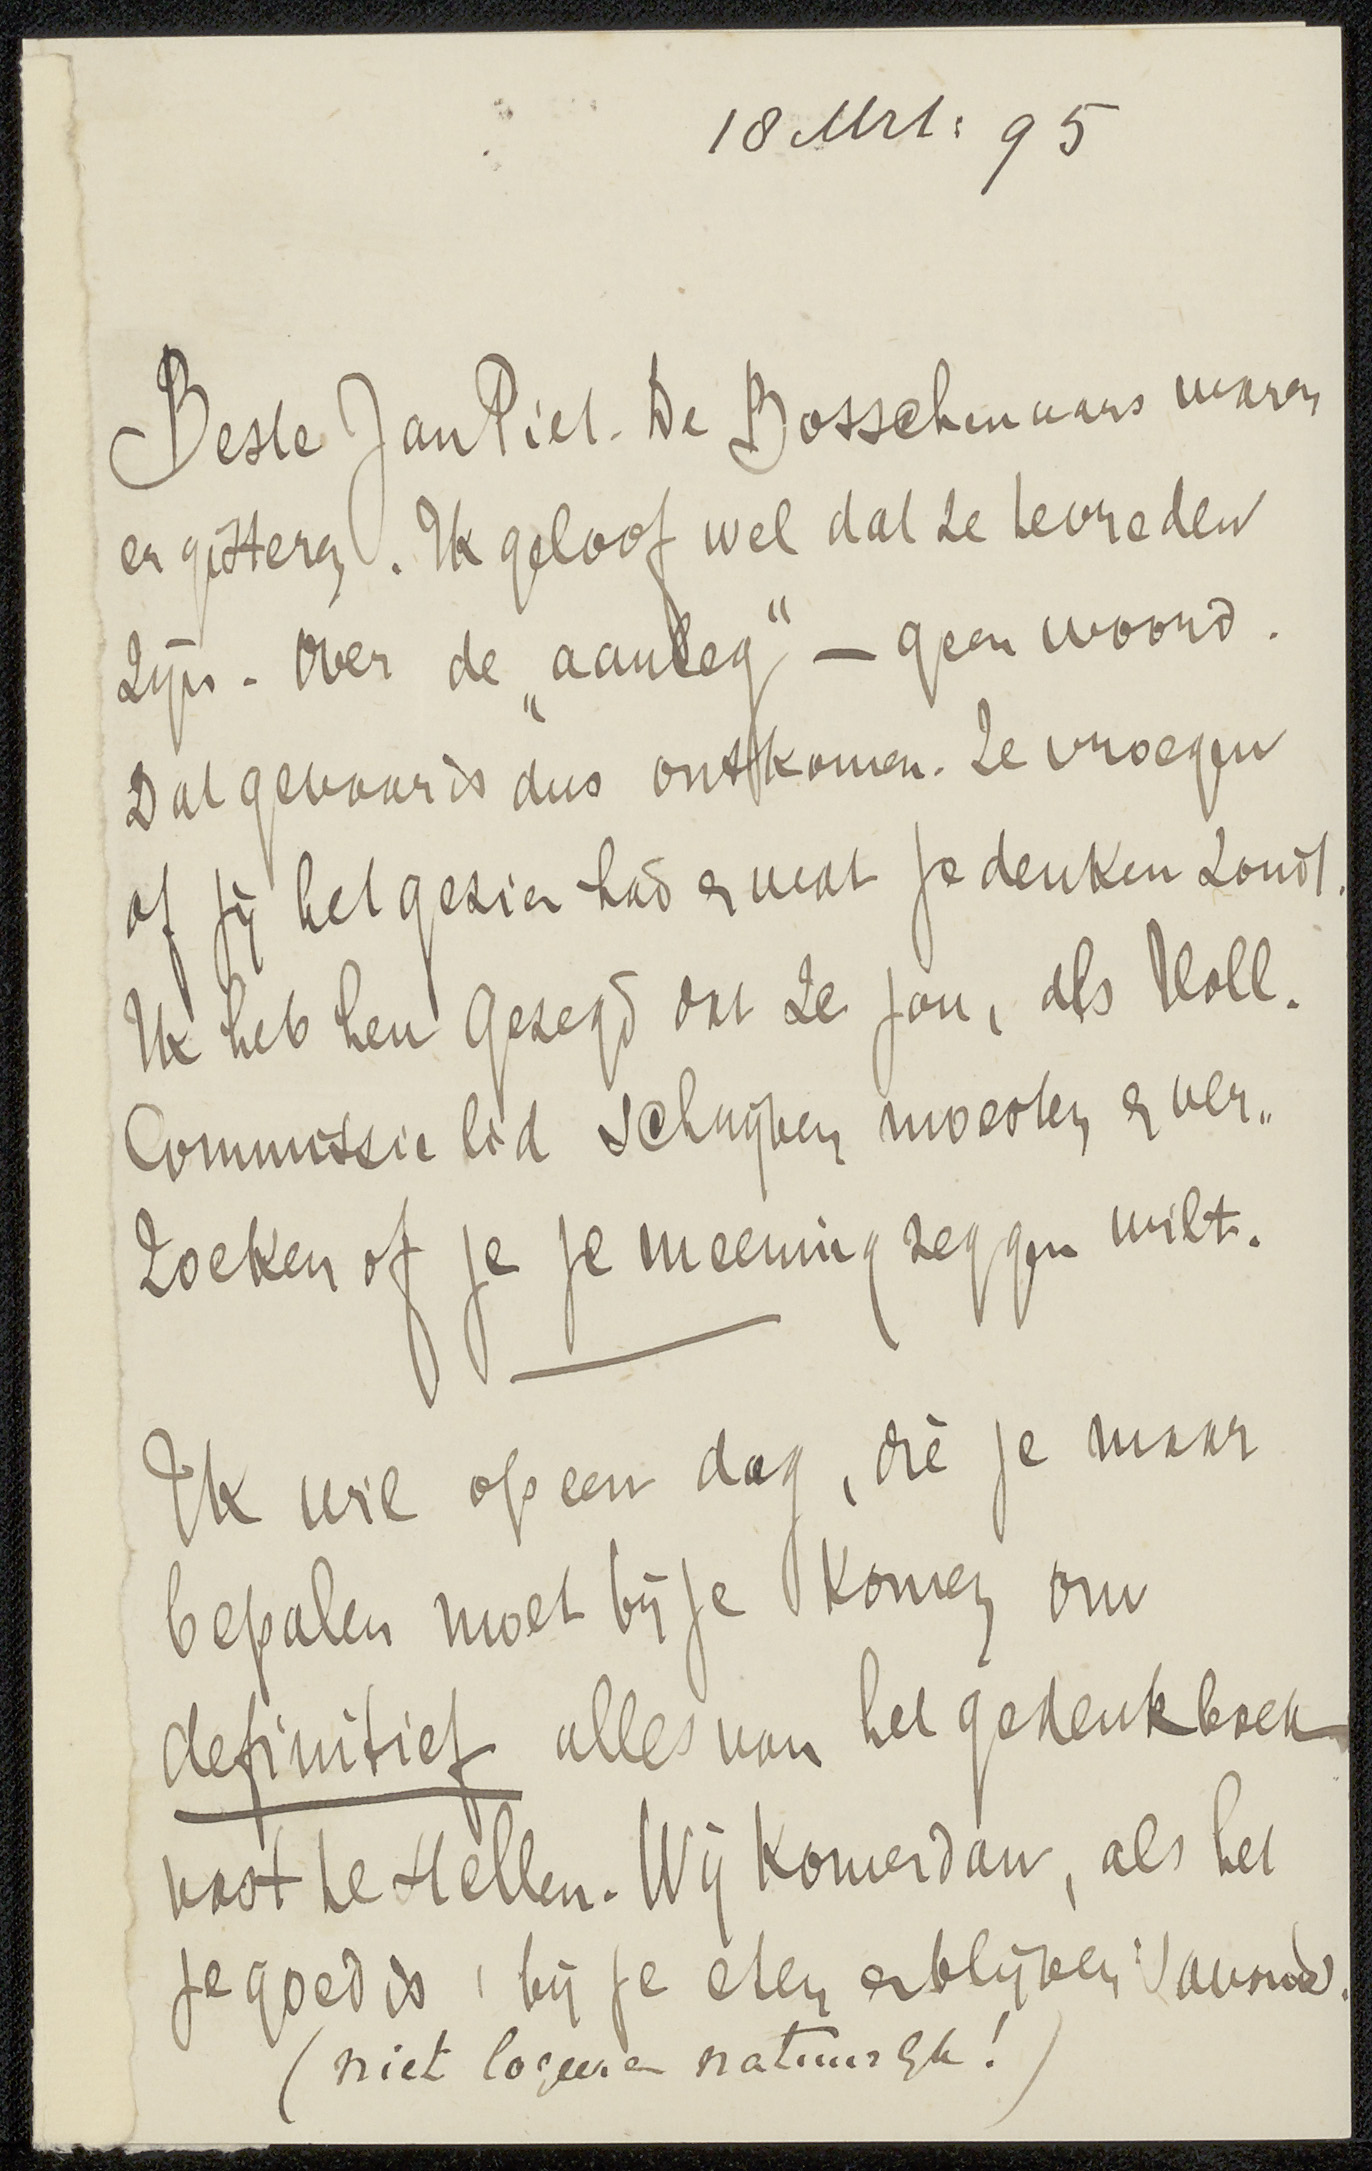 18 Mrt: 95
Beste Jan Piet. De Bosschenaars waren
er gisteren. Ik geloof wel dat ze tevreden
zijn. Over de „aanleg“ — geen woord.
Dat gevaar is dus ontkomen. Ze vroegen
of jij het gezien had en wat je denken zoudt.
Ik heb hen gezegd dat ze jou, als Holl.
Commissie lid schrijven moesten en ver„
zoeken of je je meening zeggen wilt.
Ik wil op een dag, die je maar
bepalen moet bij je komen om
definitief alles van het gedenkboek
vast te stellen. Wij komen dan, als het
je goed is, bij je eten en blijven 's avonds.
(niet logeeren natuurlijk!)